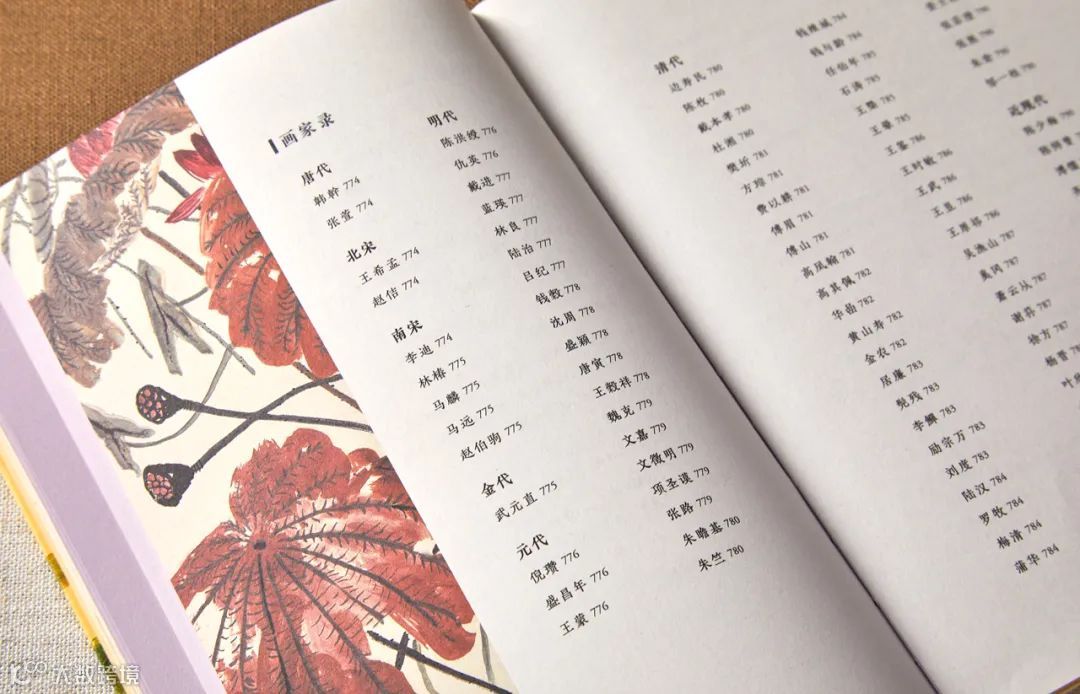 画家录
唐代
韩幹 774
张萱 774
北宋
王希孟 774
赵佶 774
南宋
李迪 774
林椿 775
马麟 775
马远 775
赵伯驹 775
金代
武元直 775
元代
倪瓒 776
盛昌年 776
王蒙 776
明代
陈洪绶 776
仇英 776
戴进 777
蓝瑛 777
林良 777
陆治 777
吕纪 777
钱榖 778
沈周 778
盛颖 778
唐寅 778
王榖祥 778
魏克 779
文嘉 779
文徵明 779
项圣谟 779
张路 779
朱瞻基 780
朱竺 780
清代
边寿民 780
陈枚 780
戴本孝 780
杜湘 780
樊圻 781
方琮 781
费以耕 781
傅眉 781
傅山 781
高凤翰 781
高其佩 782
华嵒 782
黄山寿 782
金农 782
居廉 783
髡残 783
李鱓 783
励宗万 783
刘度 783
陆汉 784
罗牧 784
梅清 784
蒲华 784
钱维城 784
钱与龄 784
任伯年 785
石涛 785
王槩 785
王翚 785
王鉴 785
王时敏 786
王武 786
王昱 786
王原祁 786
吴渔山
奚冈 787
萧云从 787
谢荪 787
徐方 787
杨晋
邹一桂 790
近现代
陈少梅
大数跨境